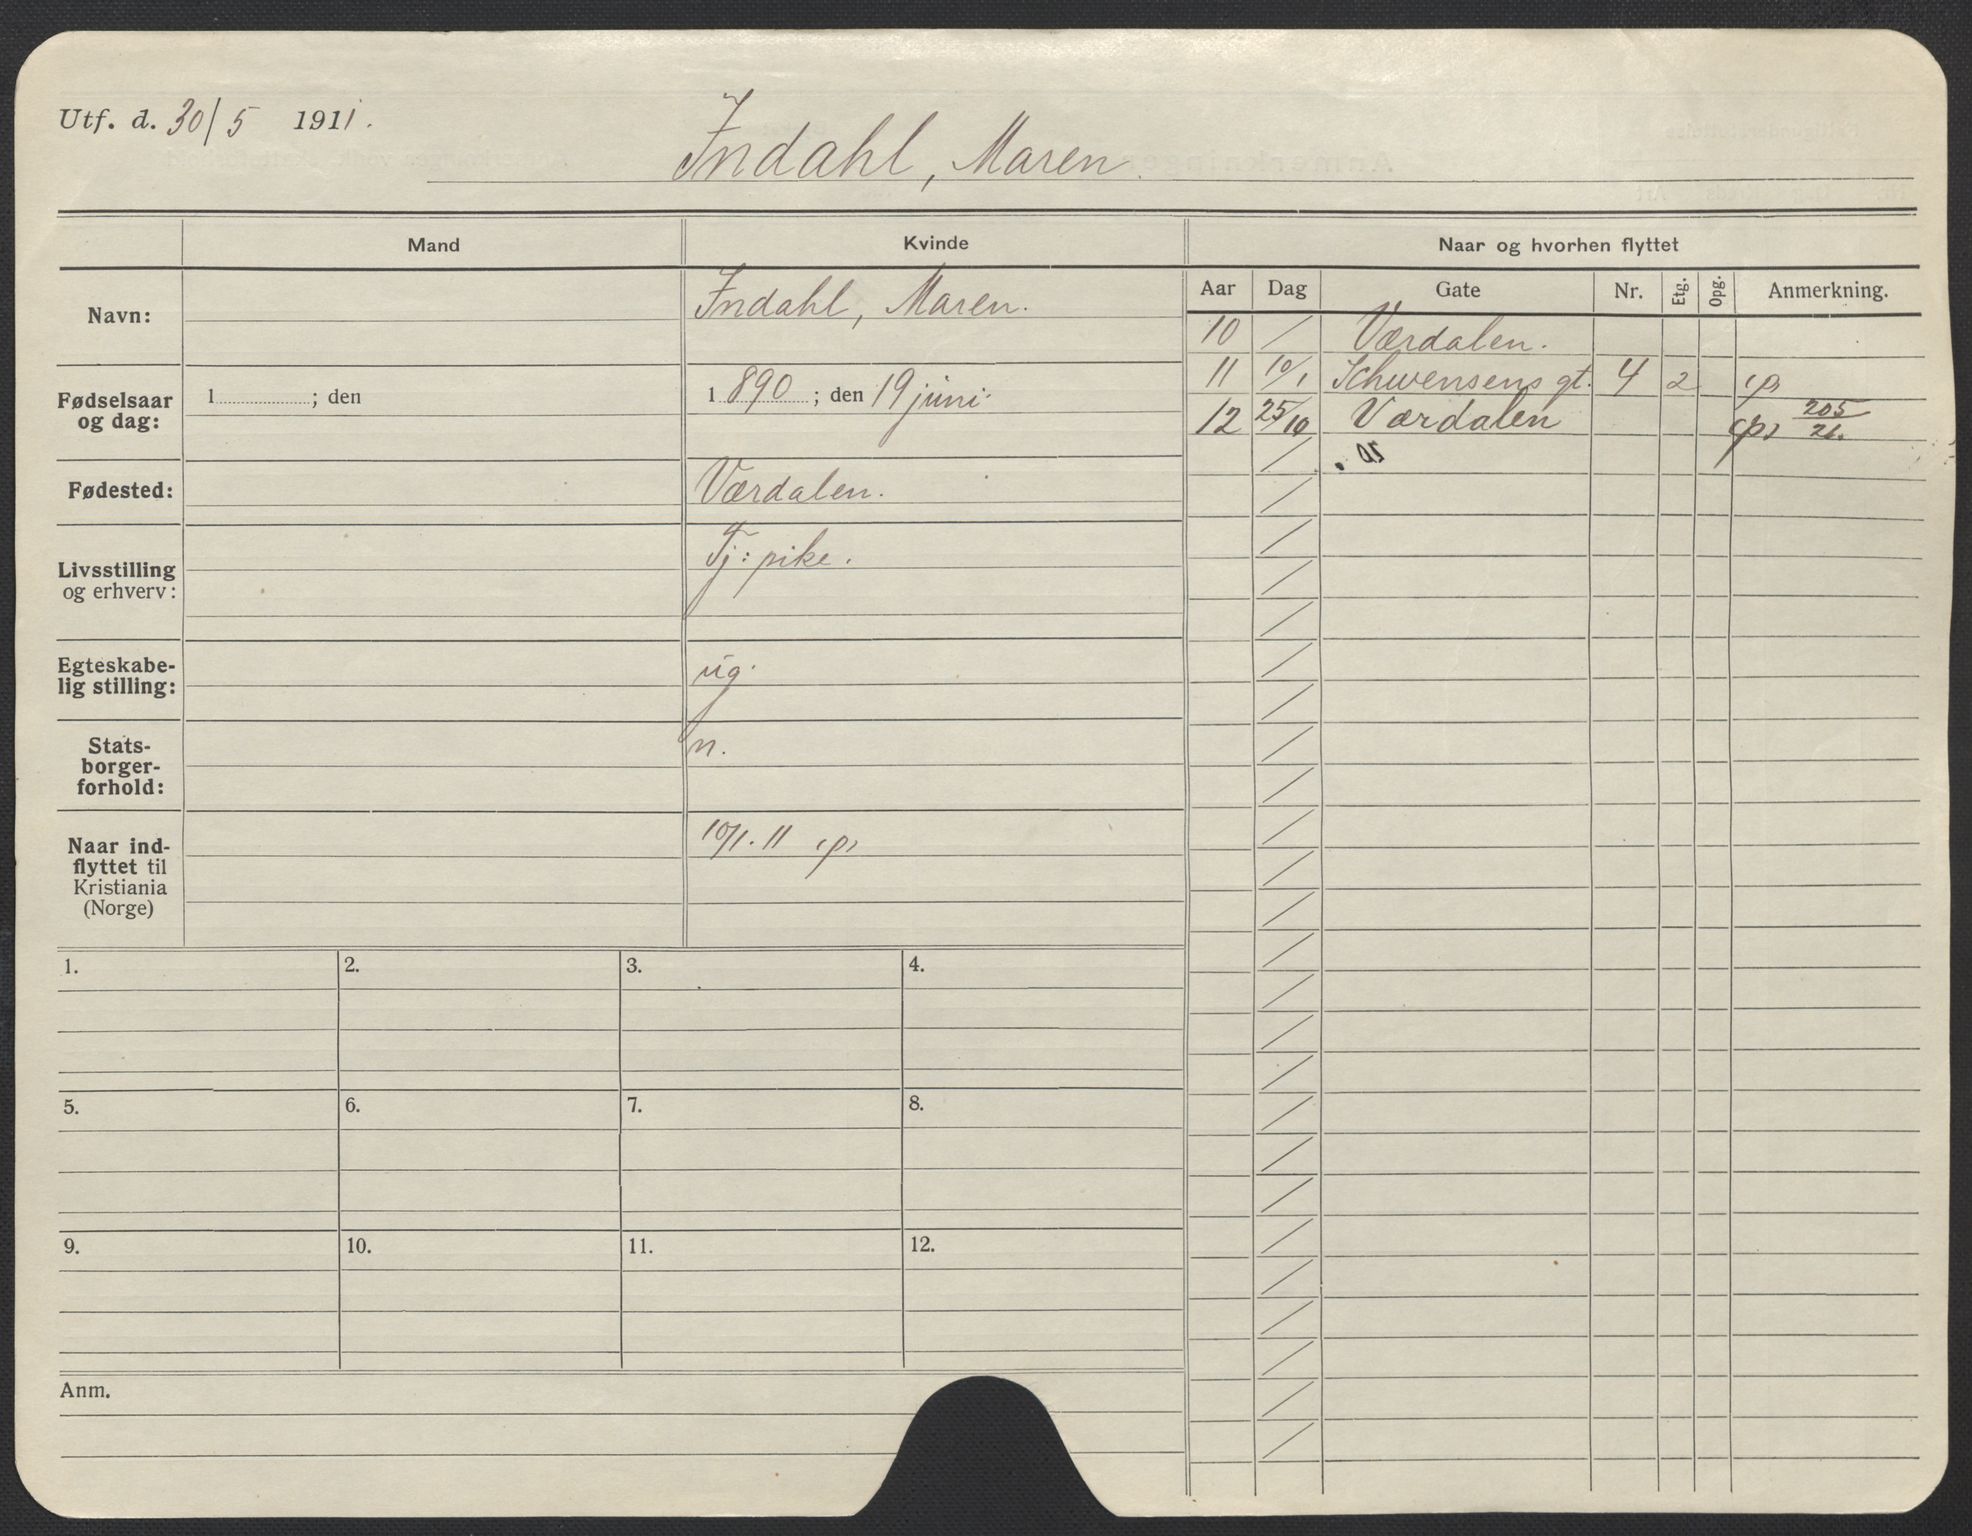 Utf. d. 30/5 1911.
Indahl, Maren.
Mand
Kvinde
Naar og hvorhen flyttet
Navn:
Indahl, Maren.
Fødselsaar
og dag:
1 ; den
1 890 ; den 19 juni.
Fødested:
Værdalen.
Livsstilling
og erhverv:
Tj: pike.
Egteskabe-
lig stilling:
ug.
Stats-
borger-
forhold:
n.
Naar ind-
flyttet til
Kristiania
(Norge)
10/1. 11 (p)
Aar Dag Gate Nr. Etg. Opg. Anmerkning.
10 / Værdalen.
11 10/1 Schwensens gt. 4 2 (p)
12 25/10 Værdalen (p) 205/21.
1. 2. 3. 4.
5. 6. 7. 8.
9. 10. 11. 12.
Anm.